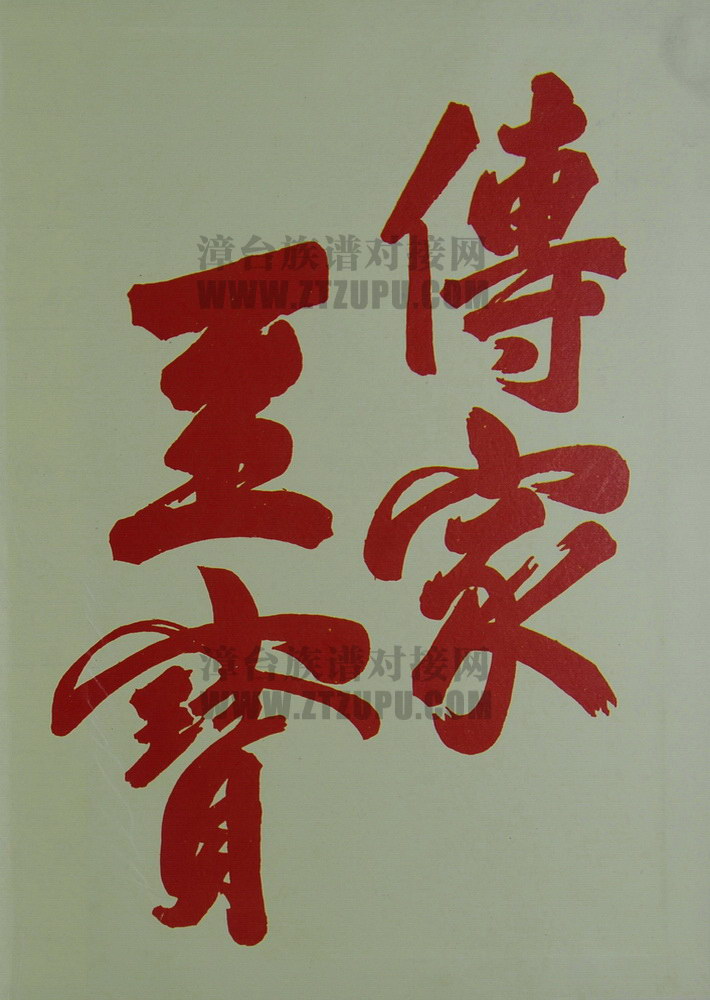 傳家
至寶
漳台族谱对接网
WWW.ZTZUPU.COM
漳台族谱对接网
WWW.ZTZUPU.COM